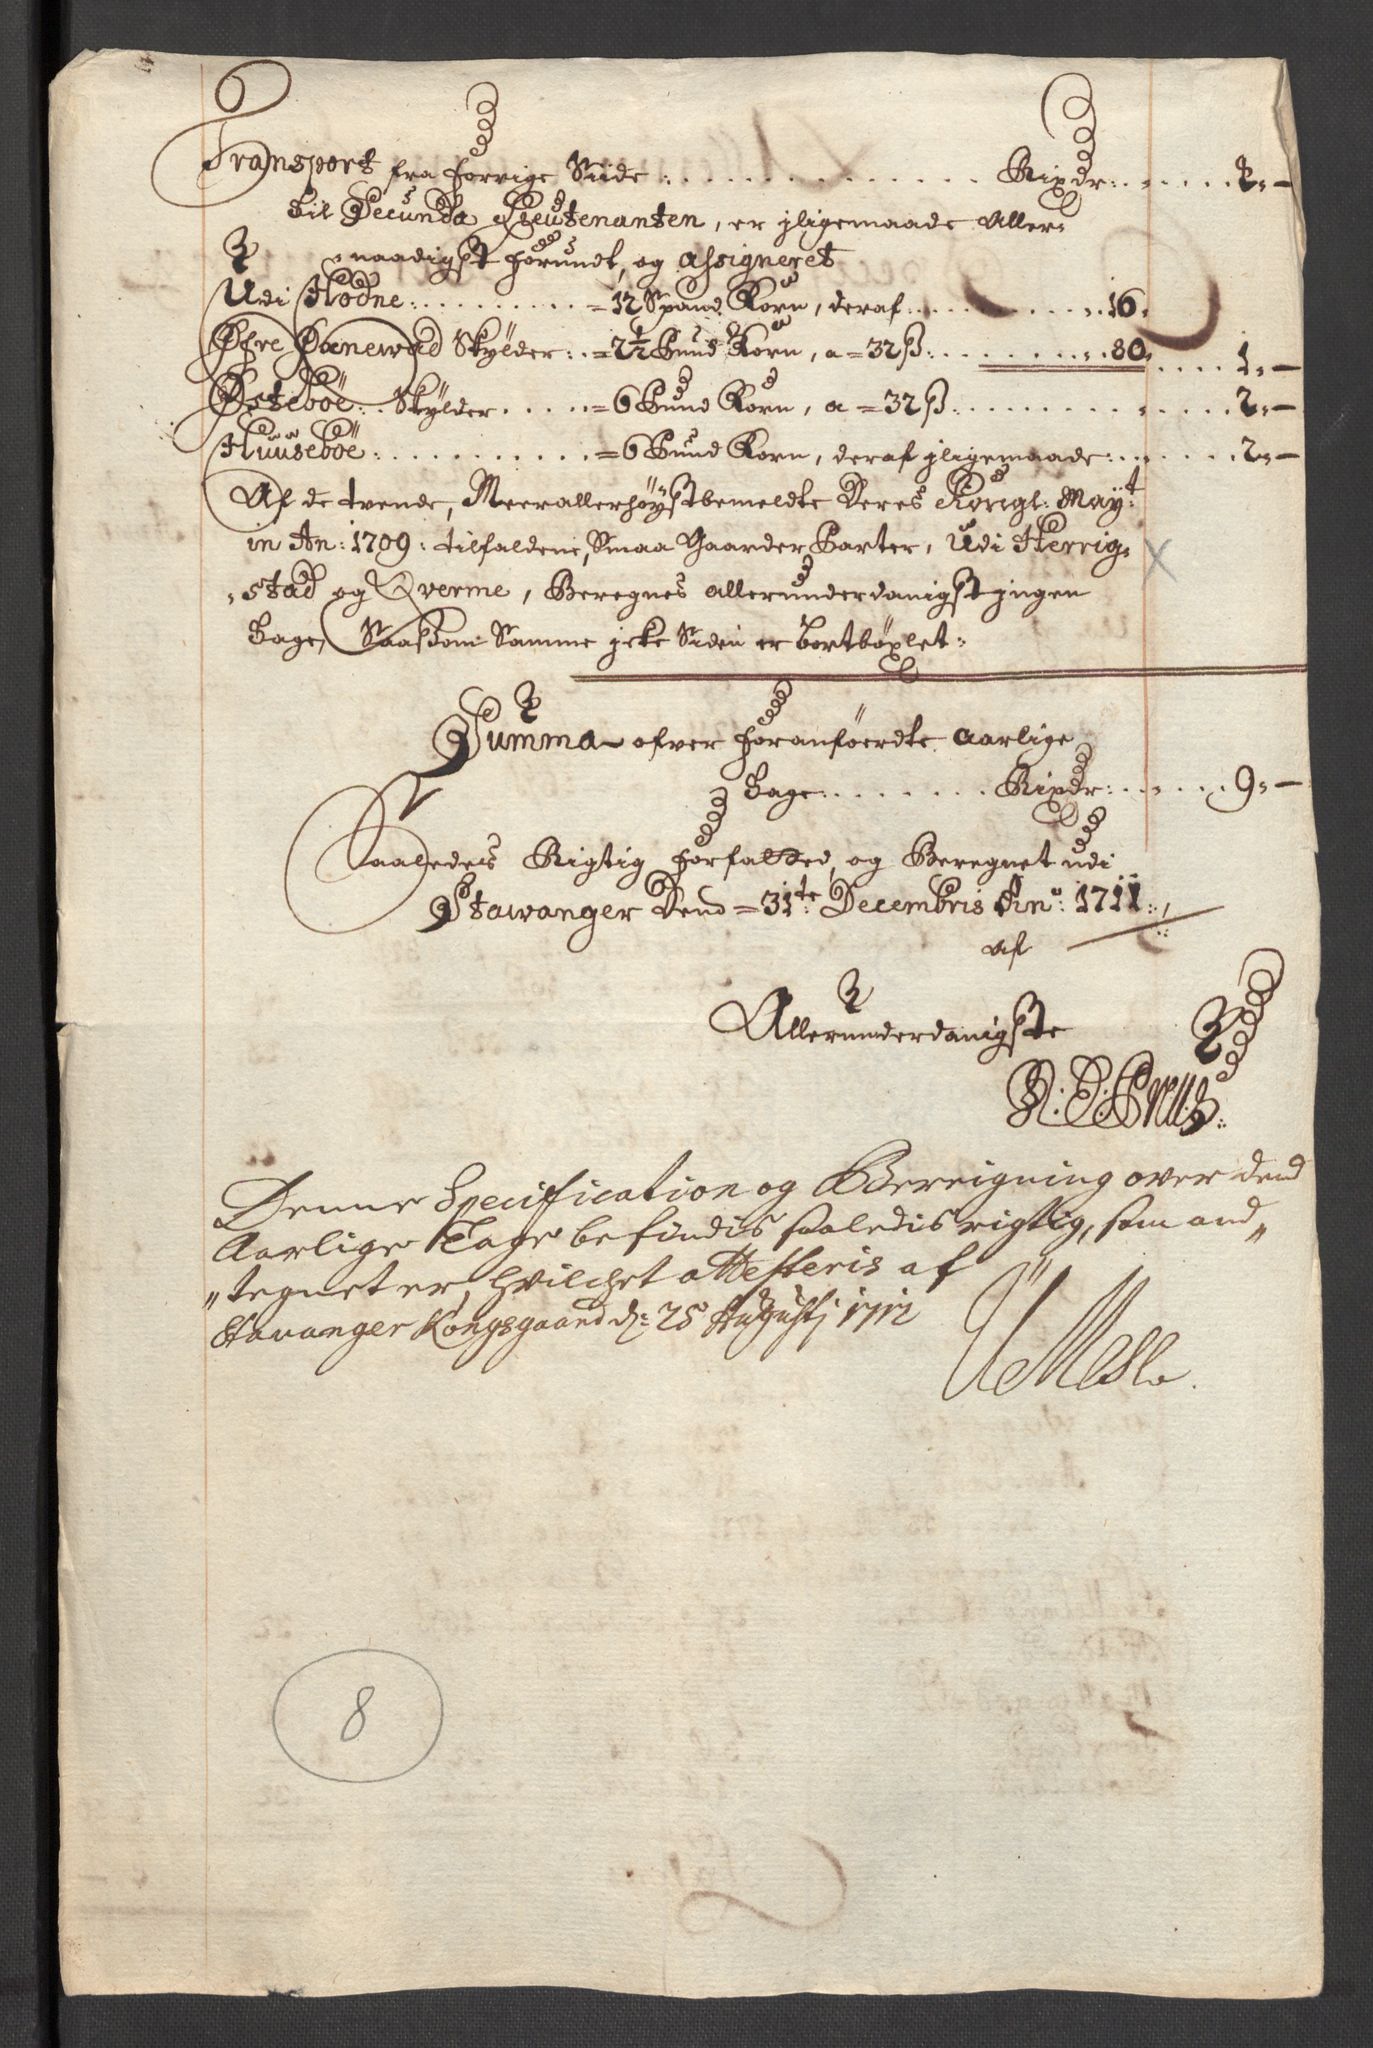 Transport fra forrige Siide: . . . . . . . . . . . Rixdr: . . . . . . 2 „ —
til Secunda Lieutenanten, er jligemaade Aller„
„naadigst forundt, og assigneret
Udi Hodne: . . . . . . . . = 12 Spand Korn, deraf . . . . . . . . 16 „
Øfre Skylder: . = 2½ Pund Korn, a = 32 ß: . . . . . . . 80 „ . . . . . 1 „ —
Østeböe: . Skylder . . . . . = 6 Pund Korn, a = 32 ß: . . . . . . . . . . . . . 2 „ —
Huuseböe: . . . . . . . . . . = 6 Pund Korn, deraf jligemaade: . . . . . . . 2 „ —
Af de tvende, Meerallerhöystbemeldte Deres Kongl: Mayt:
in An: 1709: tilfaldene, Smaa Gaarder Parter, Udi Herrig„
„stad og Qverme, Beregnes allerunderdanigst jngen
Tage, Saasom Samme jcke Siden er bortböxlet:
Summa ofver foranföerdte aarlige
Tage: . . . . . . . Rixdr: . . . . . . 9 „ —
Saaledes Rigtig forfatted, og Beregnet udi
Stawanger Dend = 31te: Decembris Ano: 1711:
af
Allerunderdanigste
Denne Specification og Bereigning over dend
Aarlige Tage befindis saaledis rigtig, som and„
„tegnet er, hvilchet attesteris af
Stavanger Kongsgaard d: 25 Augustj 1712
8